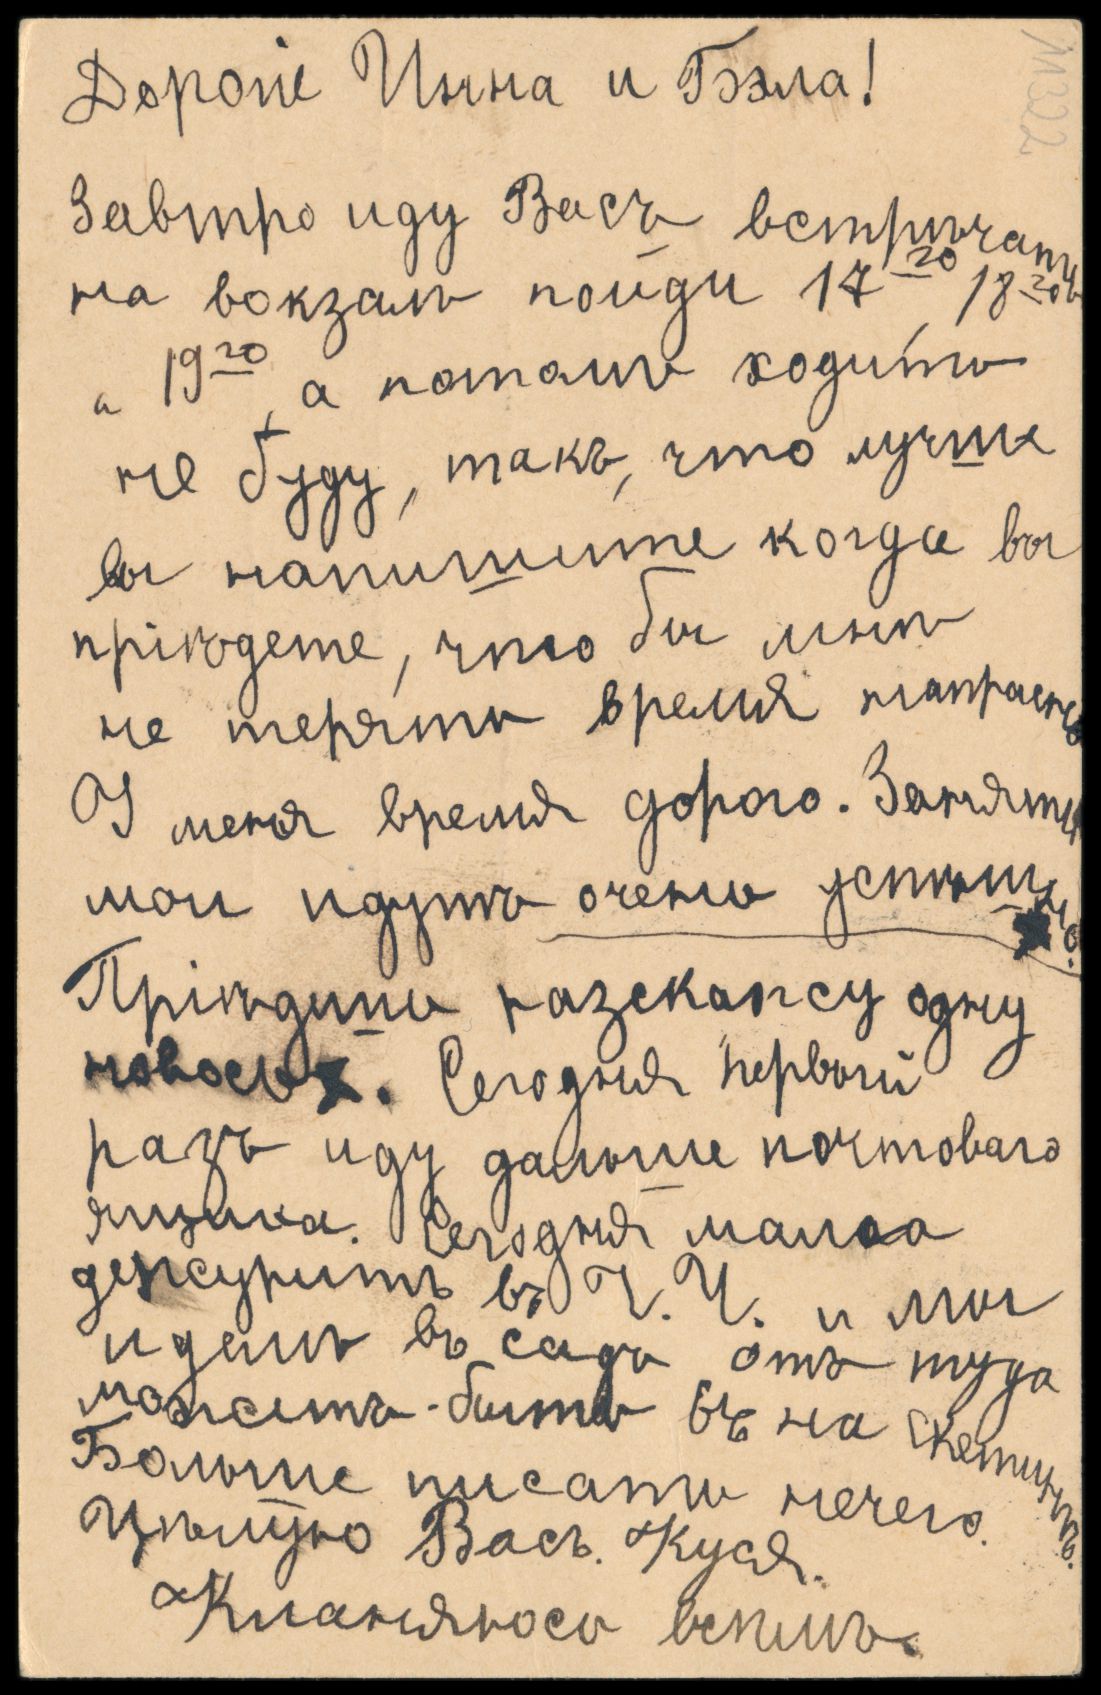 Дорогiе Инна и Бэла!
11322
Завтро иду Васъ встрѣчать
на вокзалъ пойди 17го, 18го
и 19го, а потомъ ходить
не буду, такъ, что лучше
вы напишите когда вы
прiѣдете, что бы мнѣ
не терять время напрасно
У меня время дорого. Занятiя
мои идутъ очень успѣшно.
Прiѣдишь разскажу одну
новось. Сегодня первый
разъ иду дальше почтоваго
ящика. Сегодня мама
дежуритъ въ Ч. Ч. и мы
идемъ въ садъ отъ туда
можетъ-быть въ на
Больше писать нечего.
Цѣлую Васъ. Куся.
Кланяюсь всѣмъ.